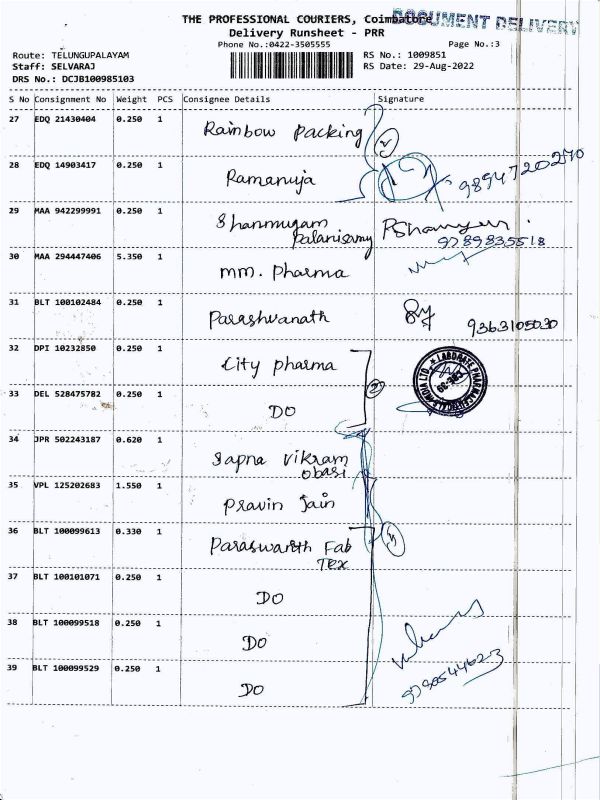 THE PROFESSIONAL COURIERS, Coimbatore
DOCUMENT DELIVERY
Delivery Runsheet - PRR
Phone No.:0422-3505555
Page No.:3
Route: TELUNGUPALAYAM
RS No.: 1009851
Staff: SELVARAJ
RS Date: 29-Aug-2022
DRS No.: DCJB100985103
S No Consignment No Weight PCS Consignee Details Signature
27 EDQ 21430404 0.250 1 Rainbow Packing
28 EDQ 14903417 0.250 1 Ramanuja 9894720270
29 MAA 942299991 0.250 1 Shanmugam
Palanisamy 9789835518
30 MAA 294447406 5.350 1 mm. pharma
31 BLT 100102484 0.250 1 Parashvanath 9363105030
32 DPI 10232850 0.250 1 City pharma
33 DEL 528475782 0.250 1 DO
34 JPR 502243187 0.620 1 Sapna Vikram
35 VPL 125202683 1.550 1 Pravin Jain
36 BLT 100099613 0.330 1 Paraswanth Fab
Tex
37 BLT 100101071 0.250 1 DO
38 BLT 100099518 0.250 1 DO
39 BLT 100099529 0.250 1 DO